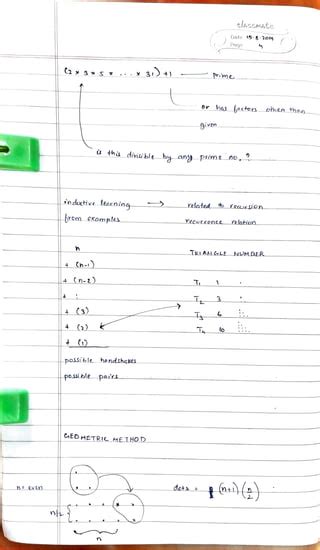 classmate
Date 15.8.2019
Page 4
(2 x 3 x 5 x .... x 31) + 1 — prime
or has factors other than
given
is this divisible by any prime no. ?
inductive learning → related to recursion
from examples recurrence relation
n TRIANGLE NUMBER
+ (n-1)
+ (n-2) T₁ 1
+ : T₂ 3
+ (3) T₃ 6
+ (2) T₄ 10
+ (1)
possible handshakes
possible pairs
GEOMETRIC METHOD
n = even dots = (n+1) (n/2)
n/2
n